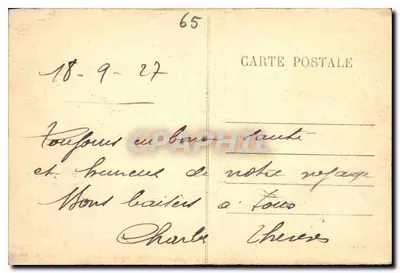 65
CARTE POSTALE
18-9-27
Toujours en bonne santé
et heureux de notre voyage
Bons baisers à tous
Charles Thérèse